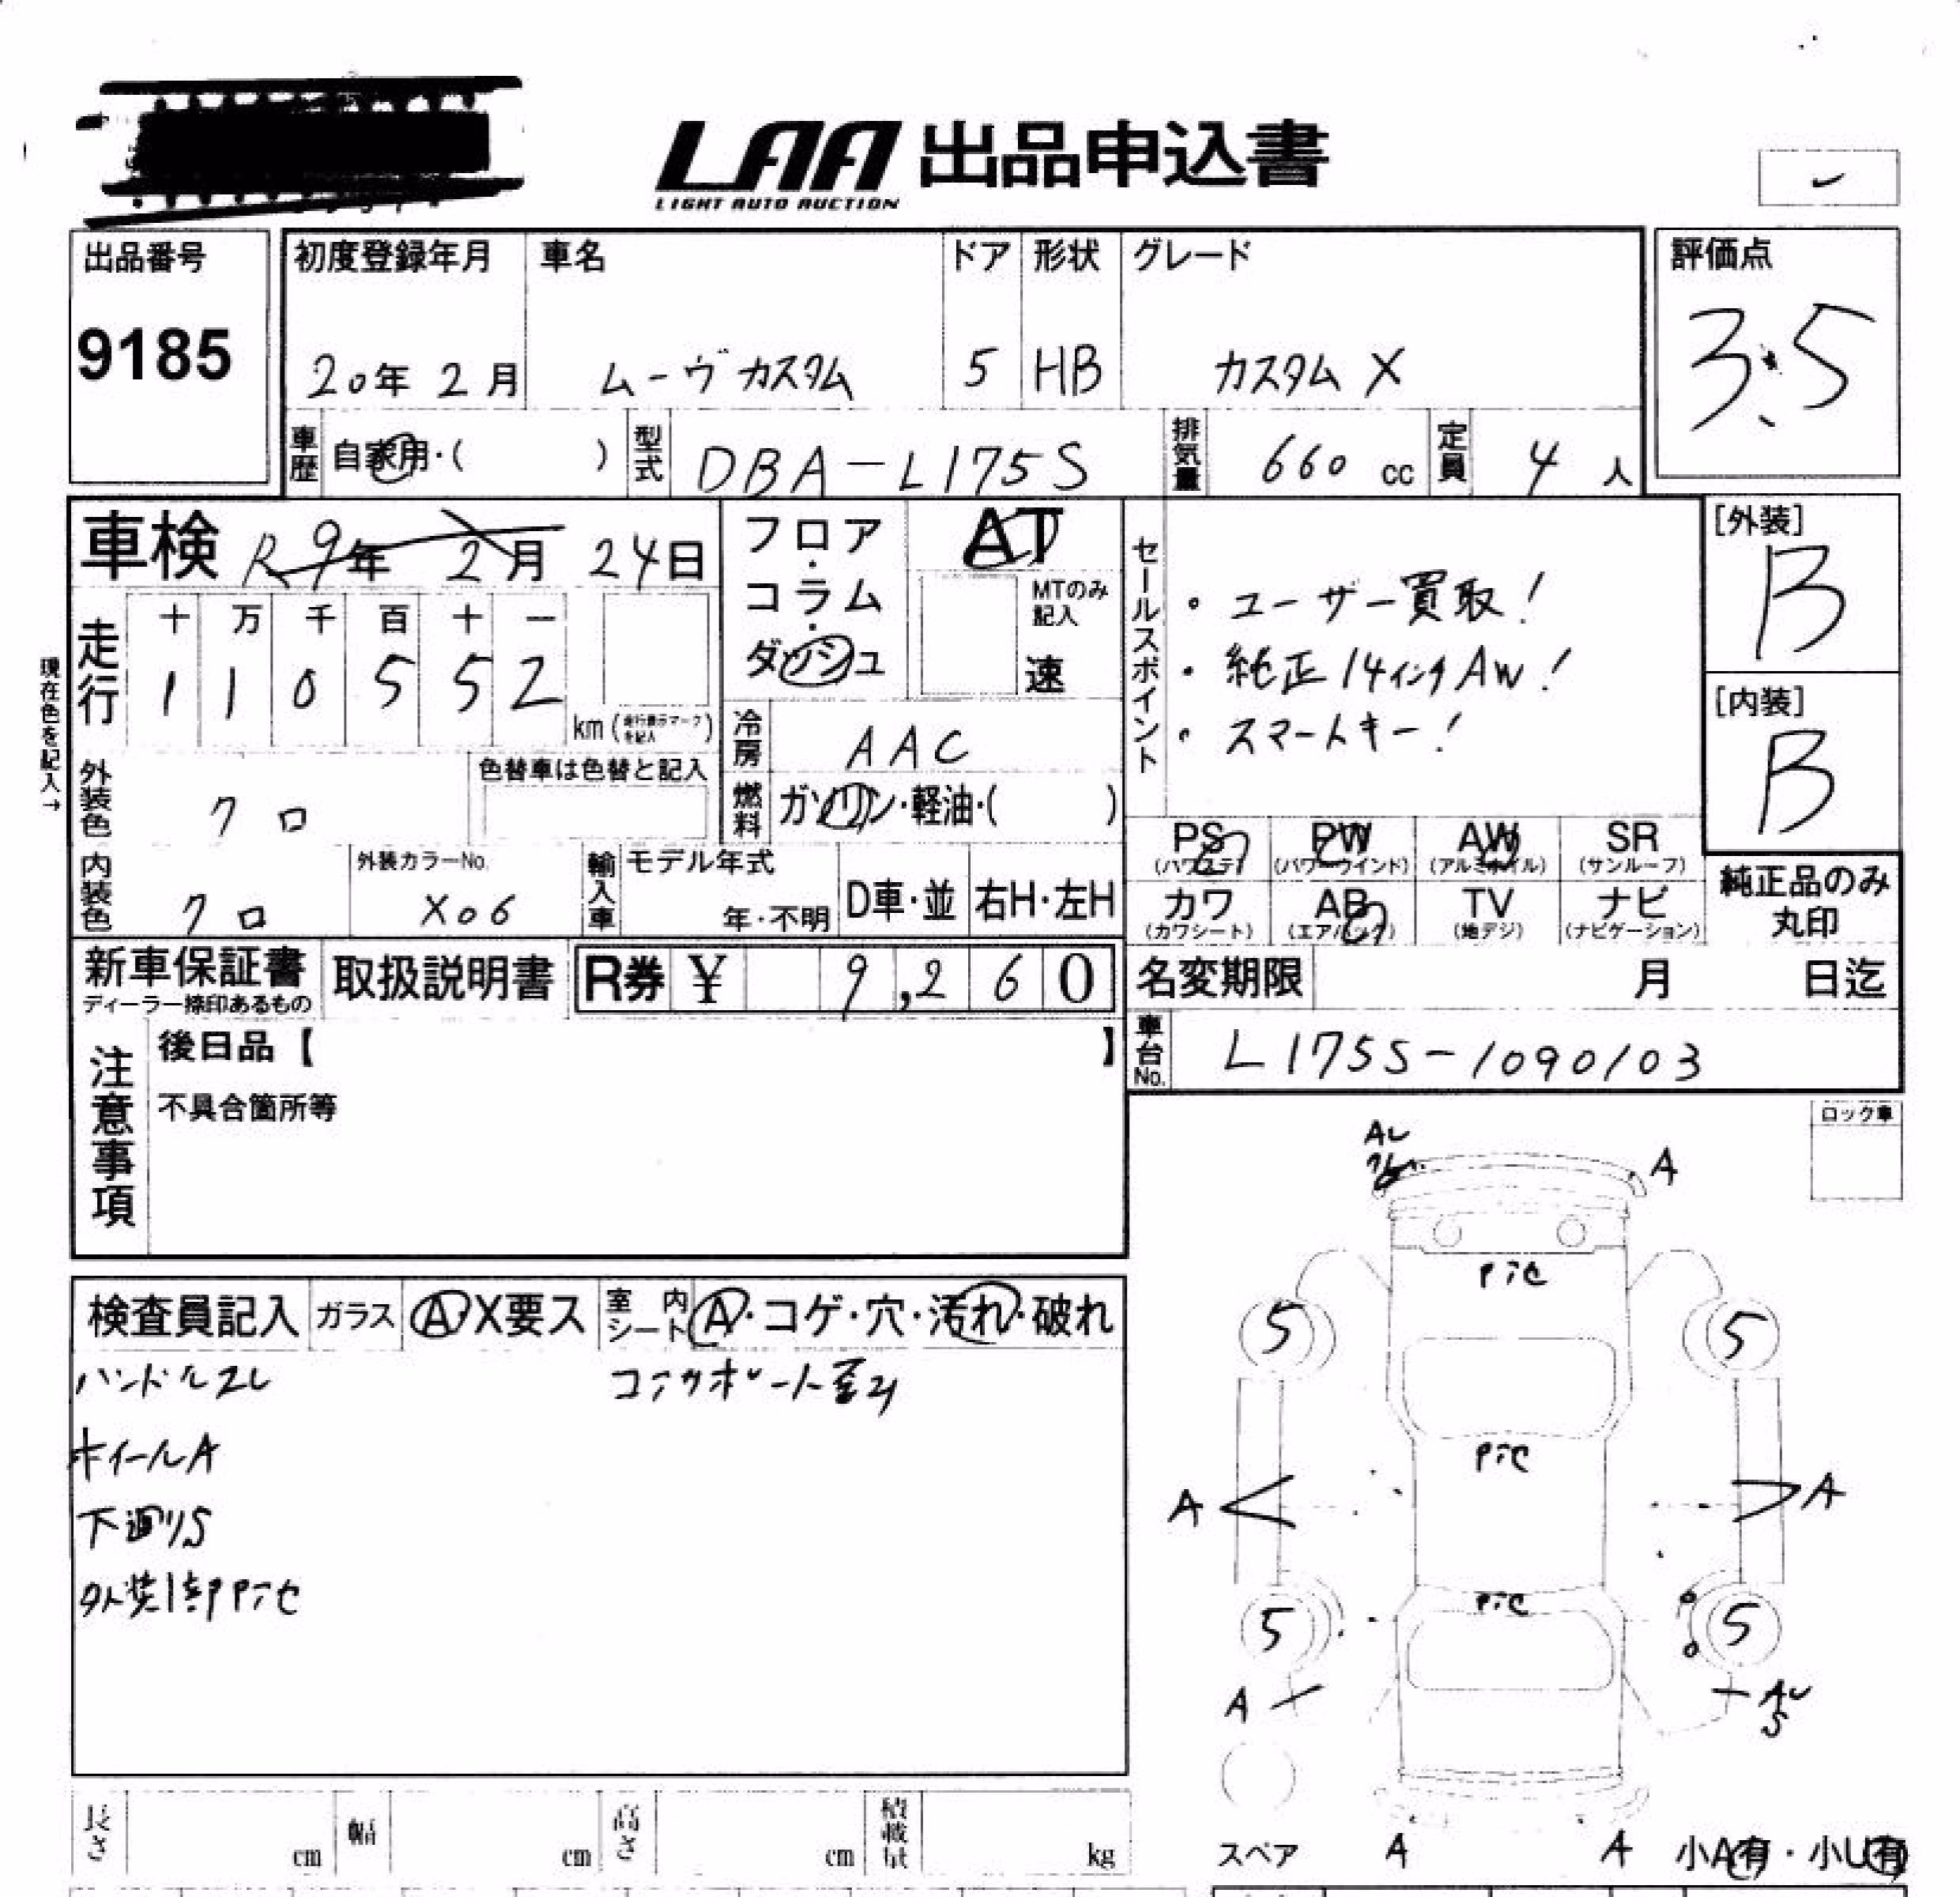 LAA 出品申込書
LIGHT AUTO AUCTION
出品番号
9185
初度登録年月
20年 2月
車名
ムーヴ カスタム
ドア
5
形状
HB
グレード
カスタム X
評価点
3.5
車歴 自家用・( )
型式 DBA-L175S
排気量 660 cc
定員 4 人
車検 R9年 2月 24日
フロア・コラム・ダッシュ
AT
MTのみ記入
速
現在色を記入→
走行
十 万 千 百 十 一
1 1 0 5 5 2
km (走行表示マークを記入)
冷房 AAC
燃料 ガソリン・軽油・( )
外装色 クロ
色替車は色替と記入
内装色 クロ
外装カラーNo.
X06
輸入車 モデル年式
年・不明
D車・並 右H・左H
セールスポイント
・ユーザー買取!
・純正14インチAW!
・スマートキー!
[外装]
B
[内装]
B
PS (パワステ)
PW (パワーウインド)
AW (アルミホイル)
SR (サンルーフ)
カワ (カワシート)
AB (エアバック)
TV (地デジ)
ナビ (ナビゲーション)
純正品のみ丸印
新車保証書
ディーラー捺印あるもの
取扱説明書
R券 ¥ 9,260
名変期限 月 日迄
車台No. L175S-1090103
注意事項
後日品【 】
不具合箇所等
ロック車
検査員記入 ガラス A・X要ス 室内シート A・コゲ・穴・汚れ・破れ
ハンドルスレ
ホイールA
下廻りS
外装1部アセ
A
5 5
A A
5 5
A
S
A A
スペア
小A有・小U有
長さ cm
幅 cm
高さ cm
積載量 kg